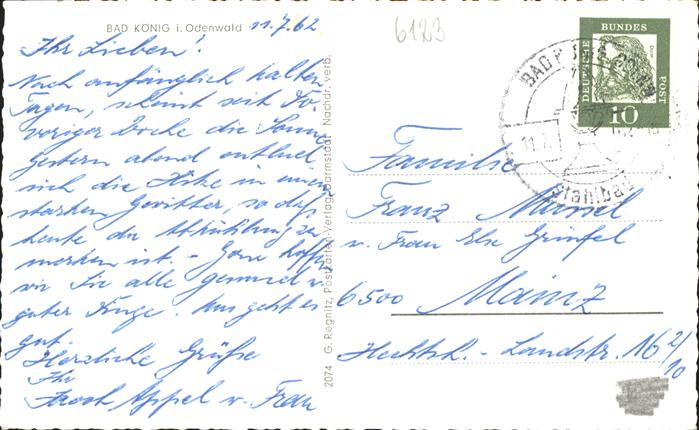 BAD KÖNIG i. Odenwald
11.7.62
6123
Ihr Lieben!
Nach anfänglich kalten
Tagen, scheint seit Do.
voriger Woche die Sonne
Gestern abend entlud
sich die Hitze in einem
starken Gewitter, so daß
heute die Abkühlung zu
merken ist. - Gern hoffen
wir Sie alle gesund u.
guter Dinge. Uns geht es
gut.
Herzliche Grüße
Ihr
Jacob Appel u. Frau
2074 G. Regnitz, Postkarten-Verlag, Darmstadt Nachdr. verb.
DEUTSCHE BUNDES POST
10
BAD KÖNIG
Stahlbad
Familie
Franz
u. Frau Else
6500 Mainz
Hechtsh. - Landstr. 16 2/10